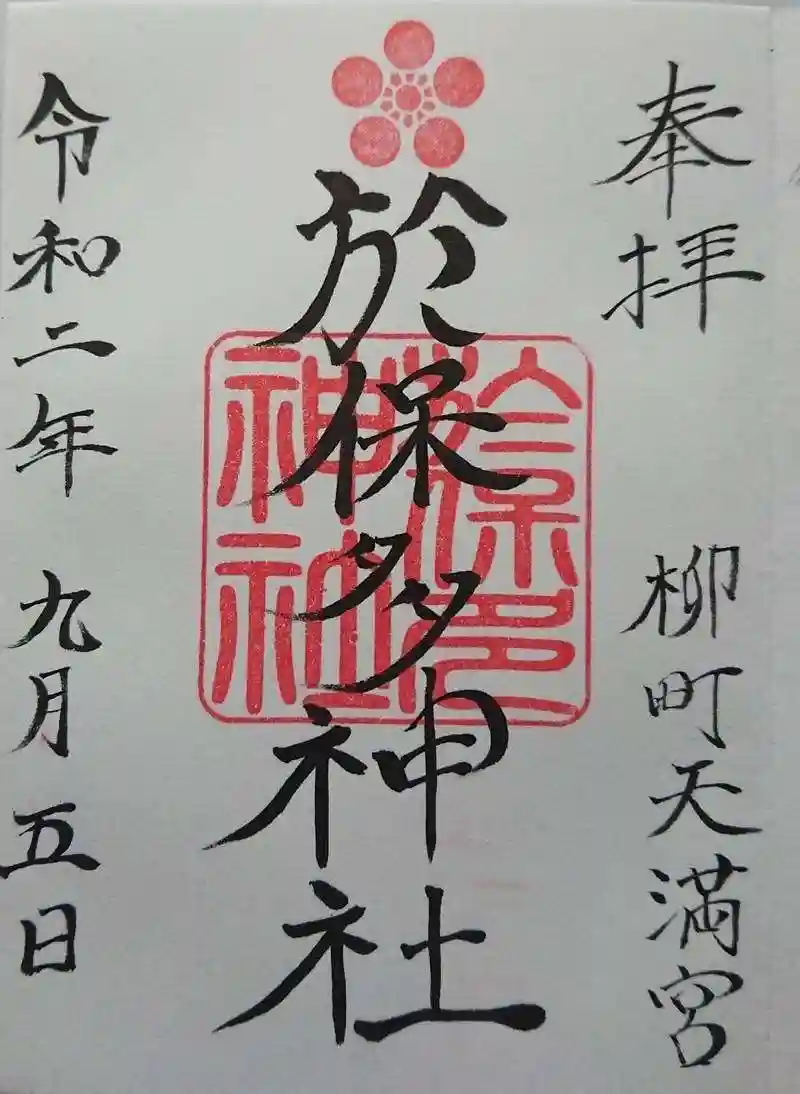 奉拝
柳町天満宮
於保多神社
於保多
神社
令和二年
九月
五日